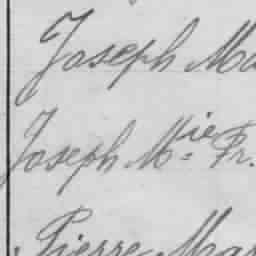 Joseph Ma
Joseph M.ie Fr.
Pierre Mar